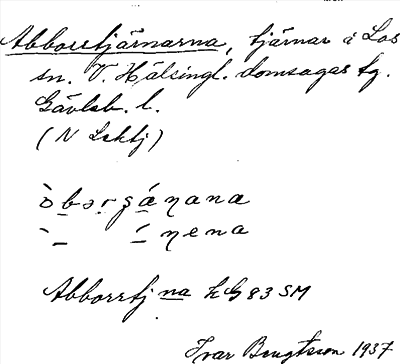 Abborrtjärnarna, tjärnar i Los
sn. V. Hälsingl. domsagas tg.
Gävleb. l.
(N Lsktj)
òbərgánana
ˋ – ˊ nena
Abborrtj na hG 83 SM
Ivar Bengtsson 1937